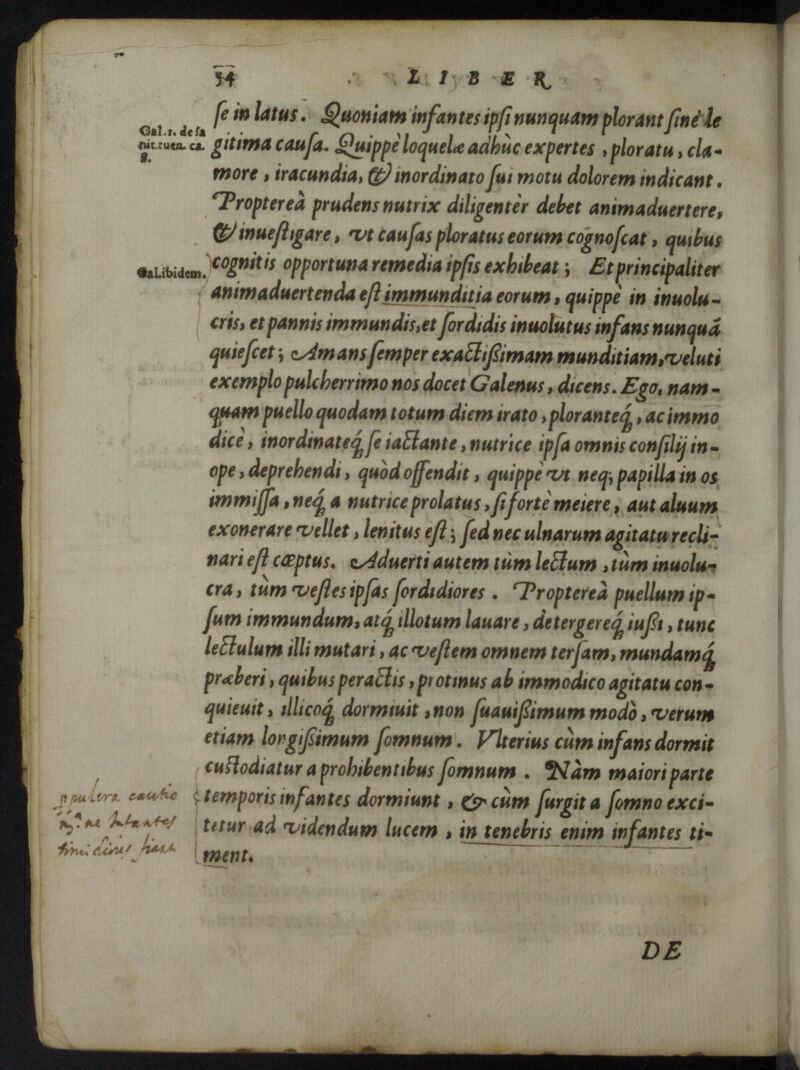 54 LIBER
se in latus. Quoniam infantes ipsi nunquam plorant sinè le
Gal.1. de sa
nit.tuen. ca.
8.
gitima causa. Quippè loquelæ adhùc expertes, ploratu, cla-
more, iracundia, & inordinato sui motu dolorem indicant.
Proptereà prudens nutrix diligentèr debet animaduertere,
& inuestigare, vt causas ploratus eorum cognoscat, quibus
Ga.Libidem.
cognitis opportuna remedia ipsis exhibeat; Et principaliter
animaduertenda est immunditia eorum, quippè in inuolu-
cris, et pannis immundis, et sordidis inuolutus infans nunquã
quiescet; Amans semper exactissimam munditiam, veluti
exemplo pulcherrimo nos docet Galenus, dicens. Ego, nam-
quam puello quodam totum diem irato, ploranteq́, ac immo
dicè, inordinateq́ se iactante, nutrice ipsa omnis consilij in-
ope, deprehendi, quòd offendit, quippè vt neq; papilla in os
immissa, neq́ a nutrice prolatus, si fortè meiere, aut aluum
exonerare vellet, lenitus est; sed nec ulnarum agitatu recli-
nari est cœptus. Aduerti autem tùm lectum, tùm inuolu-
cra, tùm vestes ipsas sordidiores. Proptereà puellum ip-
sum immundum, atq́ illotum lauare, detergereq́ iussi, tunc
lectulum illi mutari, ac vestem omnem tersam, mundamq́
præberi, quibus peractis, protinus ab immodico agitatu con-
quieuit, illicoq́ dormiuit, non suauissimum modò, verum
etiam longissimum somnum. Vlterius cùm infans dormit
custodiatur a prohibentibus somnum. Nàm maiori parte
temporis infantes dormiunt, & cùm surgit a somno exci-
tetur ad videndum lucem, in tenebris enim infantes ti-
ment.
cautio
ne Infantes
fiant
DE